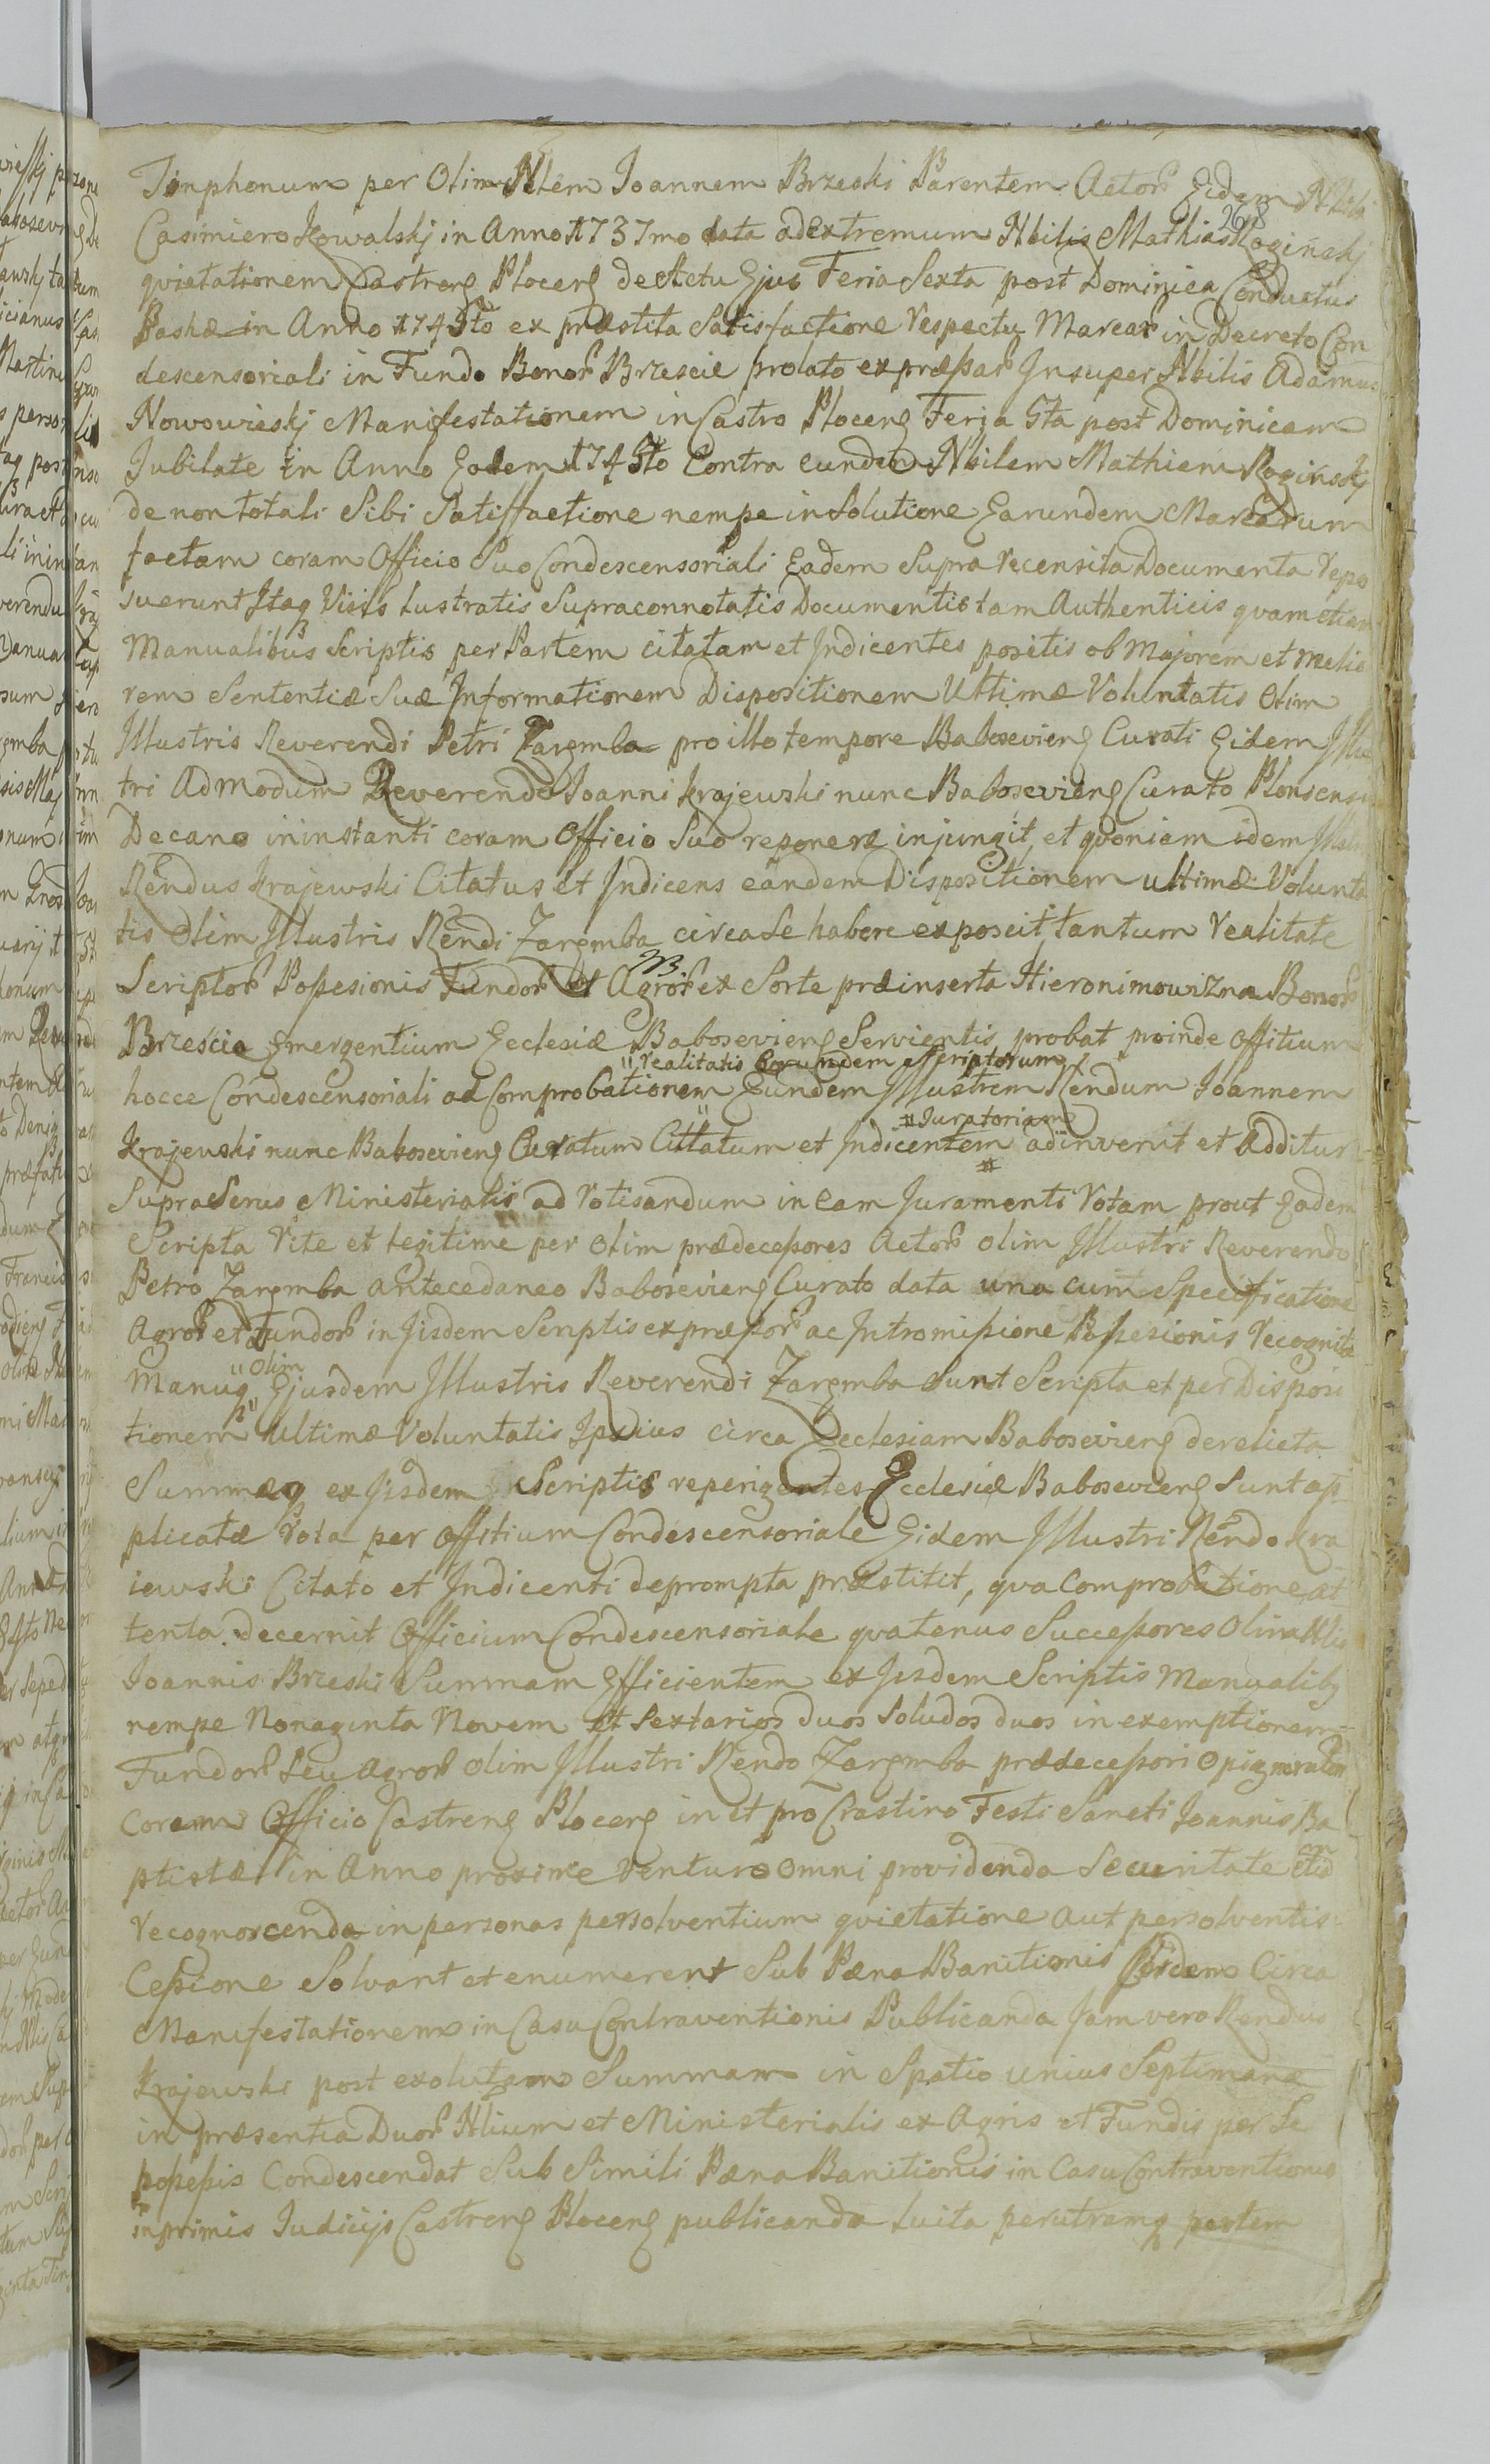 Timphonum per Olim Nlem Joannem Brzeski Parentem Actor Eidem Nbili
268
Casimiero Kowalskj in Anno 1737mo data ad extremum Nbilis Mathias Roginskj
quietationem Castreng Ploceng de Actu Ejus Feria Sexta post Dominica Conductus
Paskæ in Anno 1745to ex præstita Satisfactione respectu Marcar in Decreto Con
descensoriali in Fundo Bonor Brzescie prolato expræssar Insuper Nbilis Adamus
Nowowieskj Manifestationem in Castro Ploceng Feria 5ta post Dominicam
Jubilate in Anno Eodem 1745to Contra eundem Nbilem Mathiam Roginskj
de non totali Sibi Satisfactione nempe in Solutione Earundem Marcarum
factam coram Officio Suo Condescensoriali Eadem Supra recensita Documenta repo
suerunt Itaq Visis Lustratis Supraconnotatis Documentis tam Authenticis quam etiam
Manualibus Scriptis per Partem citatam et Indicentes positis ob Majorem et melio
rem Sententiæ Suæ Informationem Dispositionem Ultimæ Voluntatis Olim
Illustris Reverendi Petri Zaremba pro illo tempore Baboseviens Curati Eidem Illus
tri Admodum Reverendo Joanni Krajewski nunc Baboseviens Curato Plonsensi
Decano in instanti coram Officio Suo reponere injungit, et quoniam idem Illustris
Rendus Krajewski Citatus et Indicens eandem Dispositionem ultimæ Volunta
tis Olim Illustris Rendi Zaremba circa Se habere exposcit, tantum realitate
Scriptor Possesionis Fundor et Agror ex Sorte præinserta Hieronimowizna Bonor
Brzescie Emergentium Ecclesiæ Baboseviens Servientis probat proinde Offitium
" realitatis Eorundem Scriptorum
hocce Condescensoriali ad Comprobationem " Eundem Illustrem Rendum Joannem
# Juratoriam
Krajewski nunc Baboseviens Curatum Cittatum et Indicentem # adinvenit et Additur
Supra Serus Ministerialis ad rotisandum in eam Juramenti Rotam prout Eadem
Scripta Rite et legitime per olim prædecessores Actor olim Illustri Reverendo
Petro Zaremba antecedaneo Baboseviens Curato data una cum Specificatione
Agror et Fundor in Iisdem Scriptis expræssor ac Intromissione Possesionis recognita
" Olim
Manuq " Ejusdem Illustris Reverendi Zaremba Sunt Scripta et per Disposi
tionem Ultimæ Voluntatis Ipsius circa Ecclesiam Baboseviens derelicta
Summæq ex Iisdem Scriptis reperigentes Ecclesiæ Baboseviens Sunt ap
plicatæ Rota per Offitium Condescensoriale Eidem Illustri Rendo Kra
iewski Citato et Indicenti deprompta præstitit, qua Comprobatione at
tenta. decernit Officium Condescensoriale quatenus Successores Olim Nlis
Joannis Brzeski Summam Efficientem ex Iisdem Scriptis Manualibq
nempe Nonaginta Novem et Sextarios duos Soludos duos in exemptionem
Fundor Seu Agror olim Illustri Rendo Zaremba prædecessori Opignorator
coram Officio Castreng Ploceng in et pro Crastino Festi Sancti Joannis Ba
ptistæ in Anno proxime Venturo Omni providenda Securitate
recognoscenda in personas persolventium quietatione aut persolventis
Cessione Solvant et enumerent Sub Pæna Banitionis Eisdem Circa
Manifestationem in Casu Contraventionis Publicanda Jam vero Rendus
Krajewski post exolutam Summam in Spatio unius Septimanæ
in præsentia Duor Nlium et Ministerialis ex Agris et Fundis per Se
possessis Condescendat Sub Simili Pæna Banitionis in Casu Contraventionis
inprimis Judicijs Castreng Ploceng publicanda Luita perutramq partem